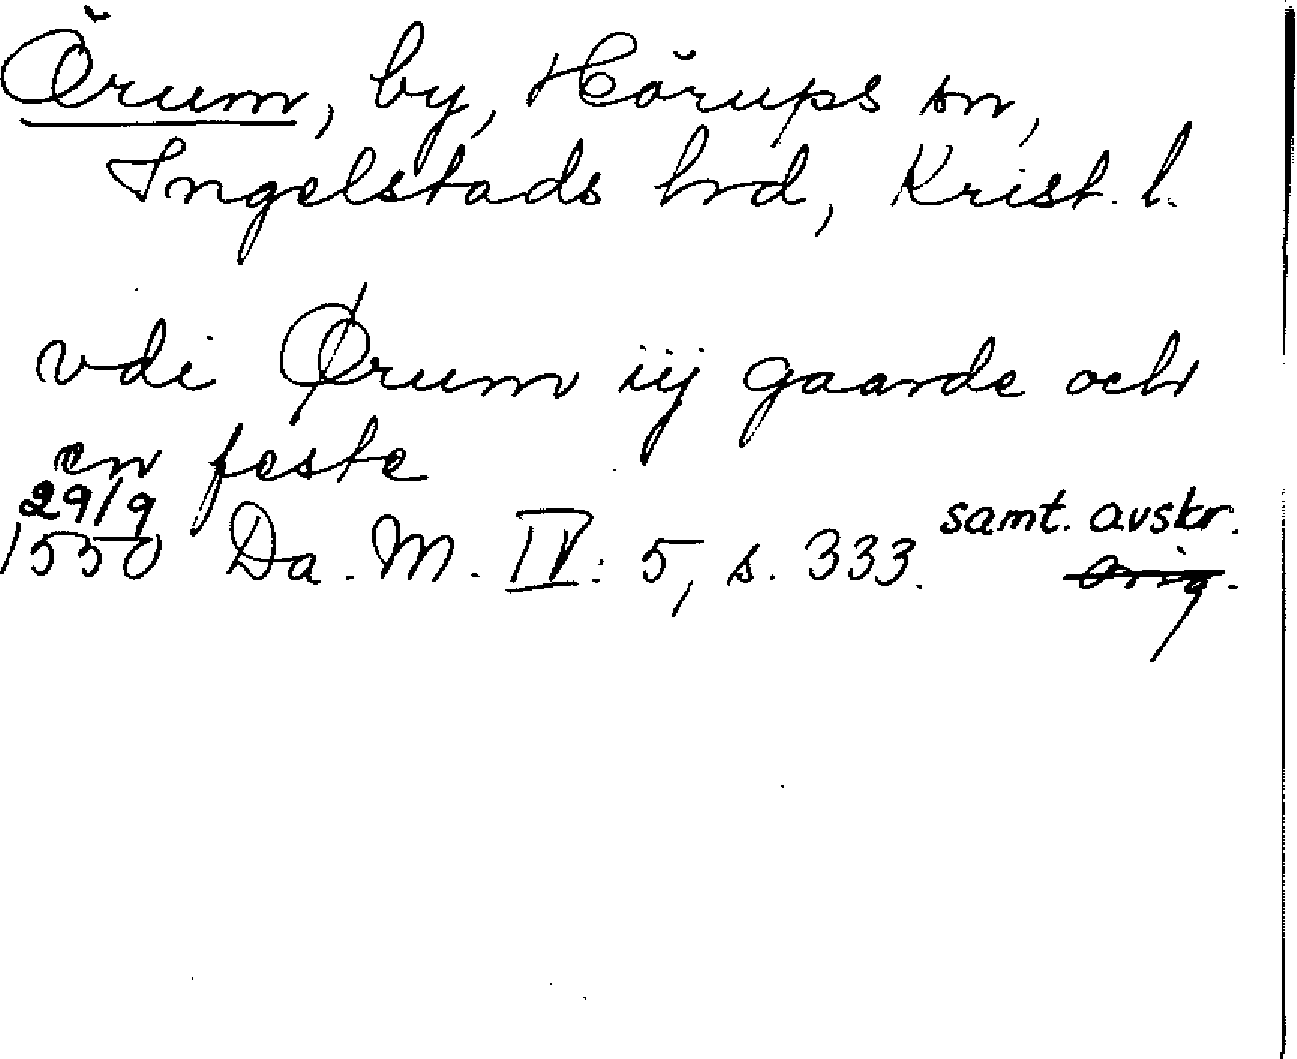 Örum, by, Hörups sn,
Ingelstads hrd, Krist. l.
vdi Ørum iij gaarde och
en feste
29/9 samt. avskr.
1550 Da. M. IV: 5, s. 333. orig.